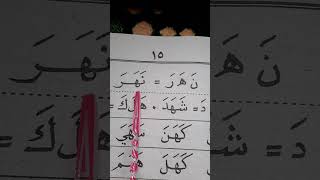 ١٥
نَ هَرَ = نَهَرَ
دَ = شَهَدَ . هَلَكَ =
كَهَنَ سَهَيَ
كَهَلَ هَمَ